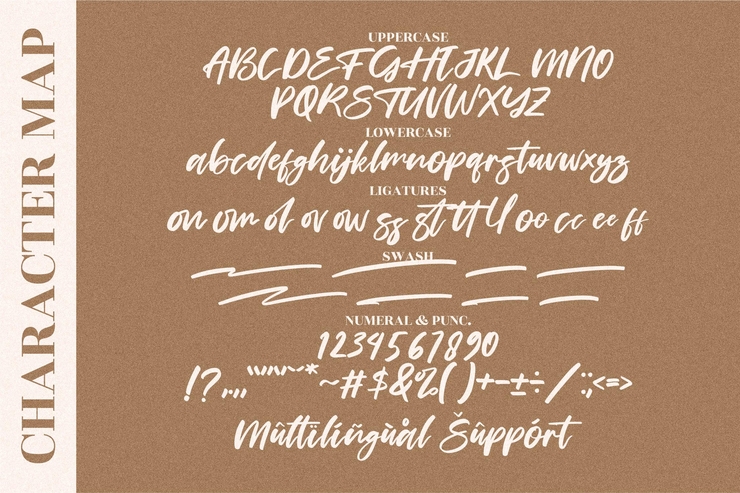 CHARACTER MAP
UPPERCASE
ABCDEFGHIJKL MNO
PQRSTUVWXYZ
LOWERCASE
abcdefghijklmnopqrstuvwxyz
LIGATURES
on om ol ov ow ss st tt ll oo cc ee ff
SWASH
NUMERAL & PUNC.
1234567890
~#$&%()+-±÷/:;<=>
Mûltïlíñgùål Šûppórt